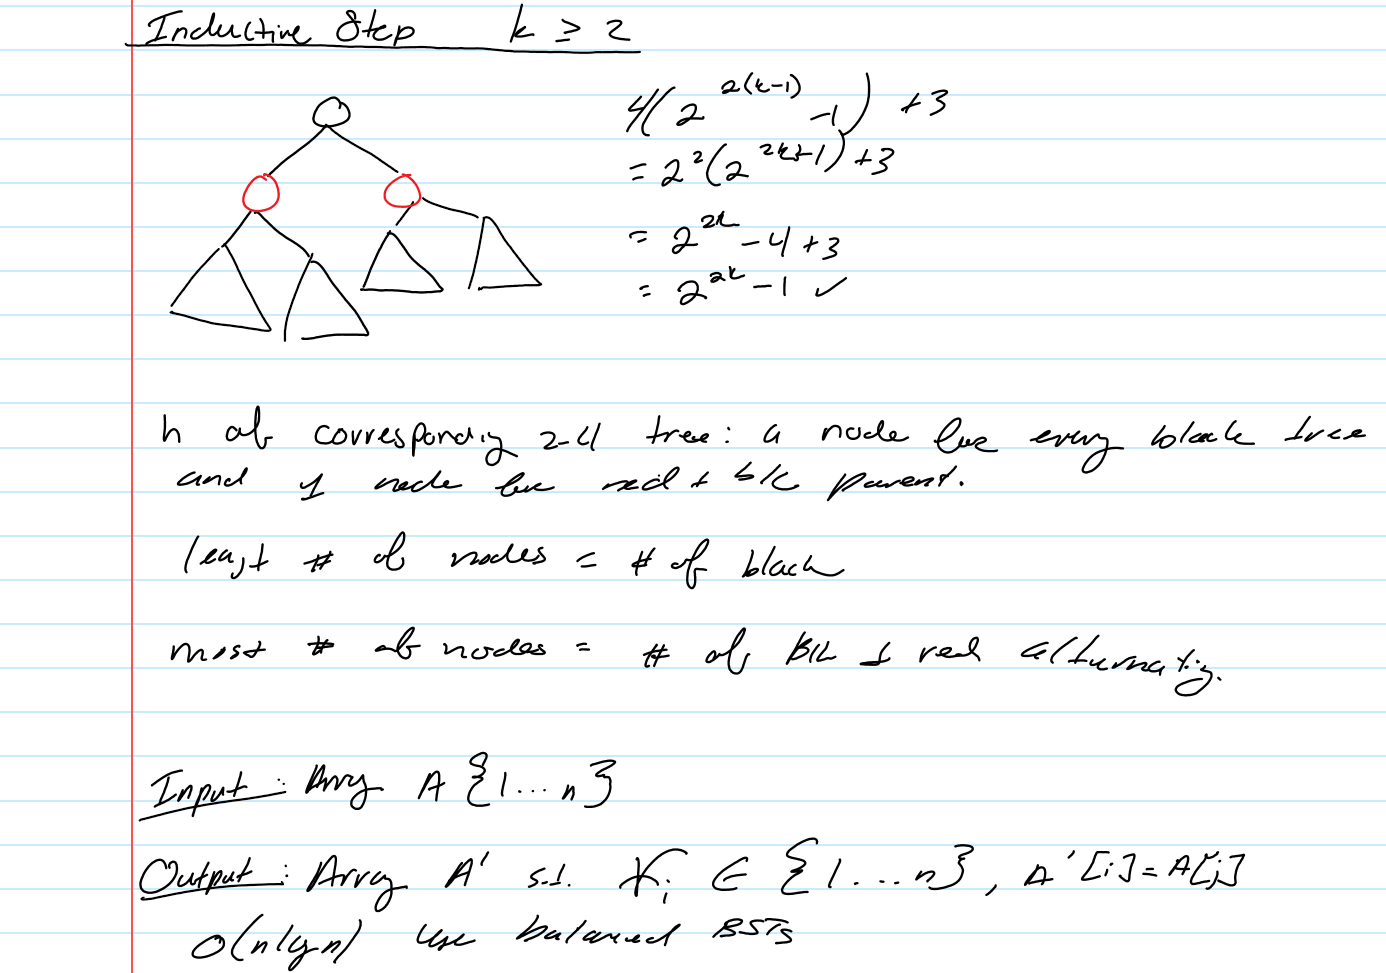 Inductive Step k ≥ 2
4(2^{2(k-1)} - 1) + 3
= 2^2(2^{2k+1}) + 3
= 2^{2k} - 4 + 3
= 2^{2k} - 1 ✓
h of corresponding 2-4 tree: a node for every black tree
and 1 node for red + blk parent.
least # of nodes = # of black
most # of nodes = # of Blk + red alternating.
Input: Array A {1...n}
Output: Array A' s.t. ∀i ∈ {1...n}, A'[i] = A[j]
O(n lg n) use balanced BSTs